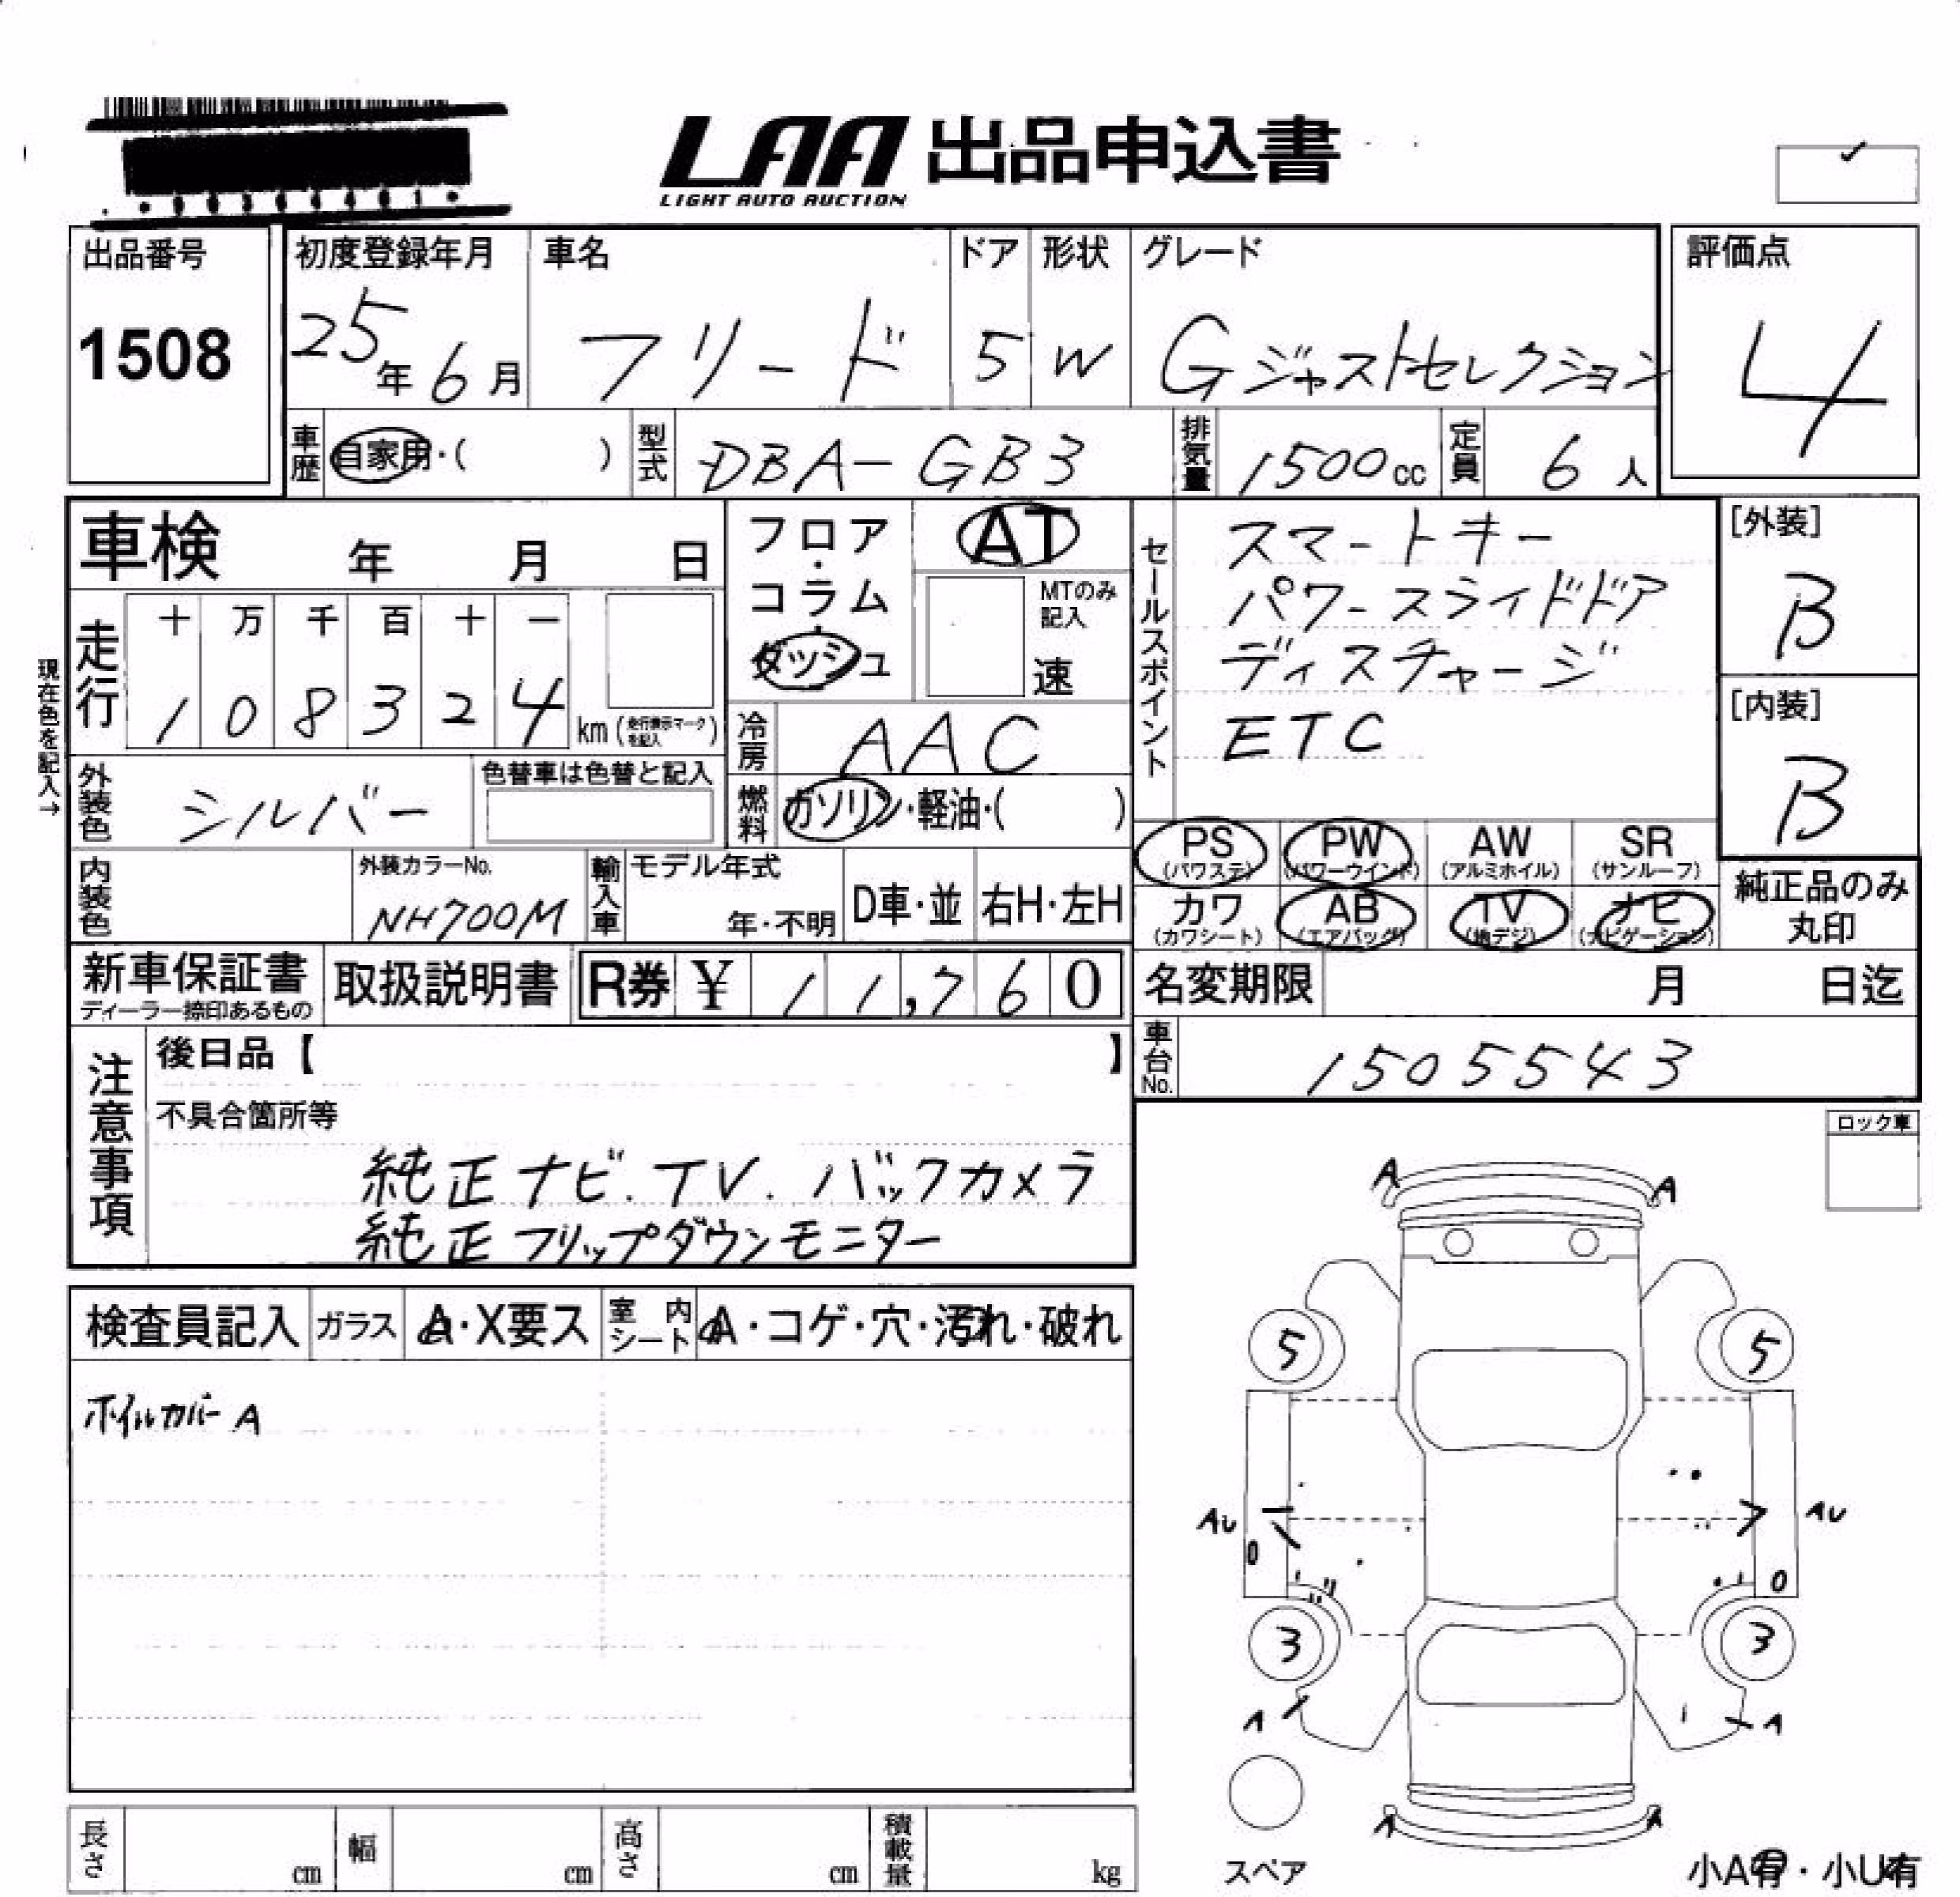 LAA 出品申込書
LIGHT AUTO AUCTION
出品番号 初度登録年月 車名 ドア 形状 グレード 評価点
1508 25年6月 フリード 5 W Gジャストセレクション 4
車歴 自家用・( ) 型式 DBA-GB3 排気量 1500cc 定員 6人
車検 年 月 日
フロア・コラム・ダッシュ
AT
MTのみ記入
速
セールスポイント
スマートキー
パワースライドドア
ディスチャージ
ETC
[外装]
B
[内装]
B
現在色を記入→
走行 十 万 千 百 十 一
1 0 8 3 2 4 km (走行表示マークを記入)
冷房 AAC
外装色 シルバー 色替車は色替と記入
燃料 ガソリン・軽油・( )
PS PW AW SR
(パワステ) (パワーウインド) (アルミホイル) (サンルーフ)
カワ AB TV ナビ
(カワシート) (エアバッグ) (地デジ) (ナビゲーション)
純正品のみ
丸印
内装色 外装カラーNo. NH700M 輸入車 モデル年式 年・不明 D車・並 右H・左H
新車保証書 取扱説明書 R券 ¥ 11,760 名変期限 月 日迄
ディーラー捺印あるもの
車台No. 1505543
注意事項
後日品【 】
不具合箇所等
純正ナビ.TV.バックカメラ
純正フリップダウンモニター
ロック車
検査員記入 ガラス A・X要ス 室内シート A・コゲ・穴・汚れ・破れ
ホイルカバーA
A A
5 5
AU AU
3 3
A A
A A
スペア
小A有・小U有
長さ cm 幅 cm 高さ cm 積載量 kg